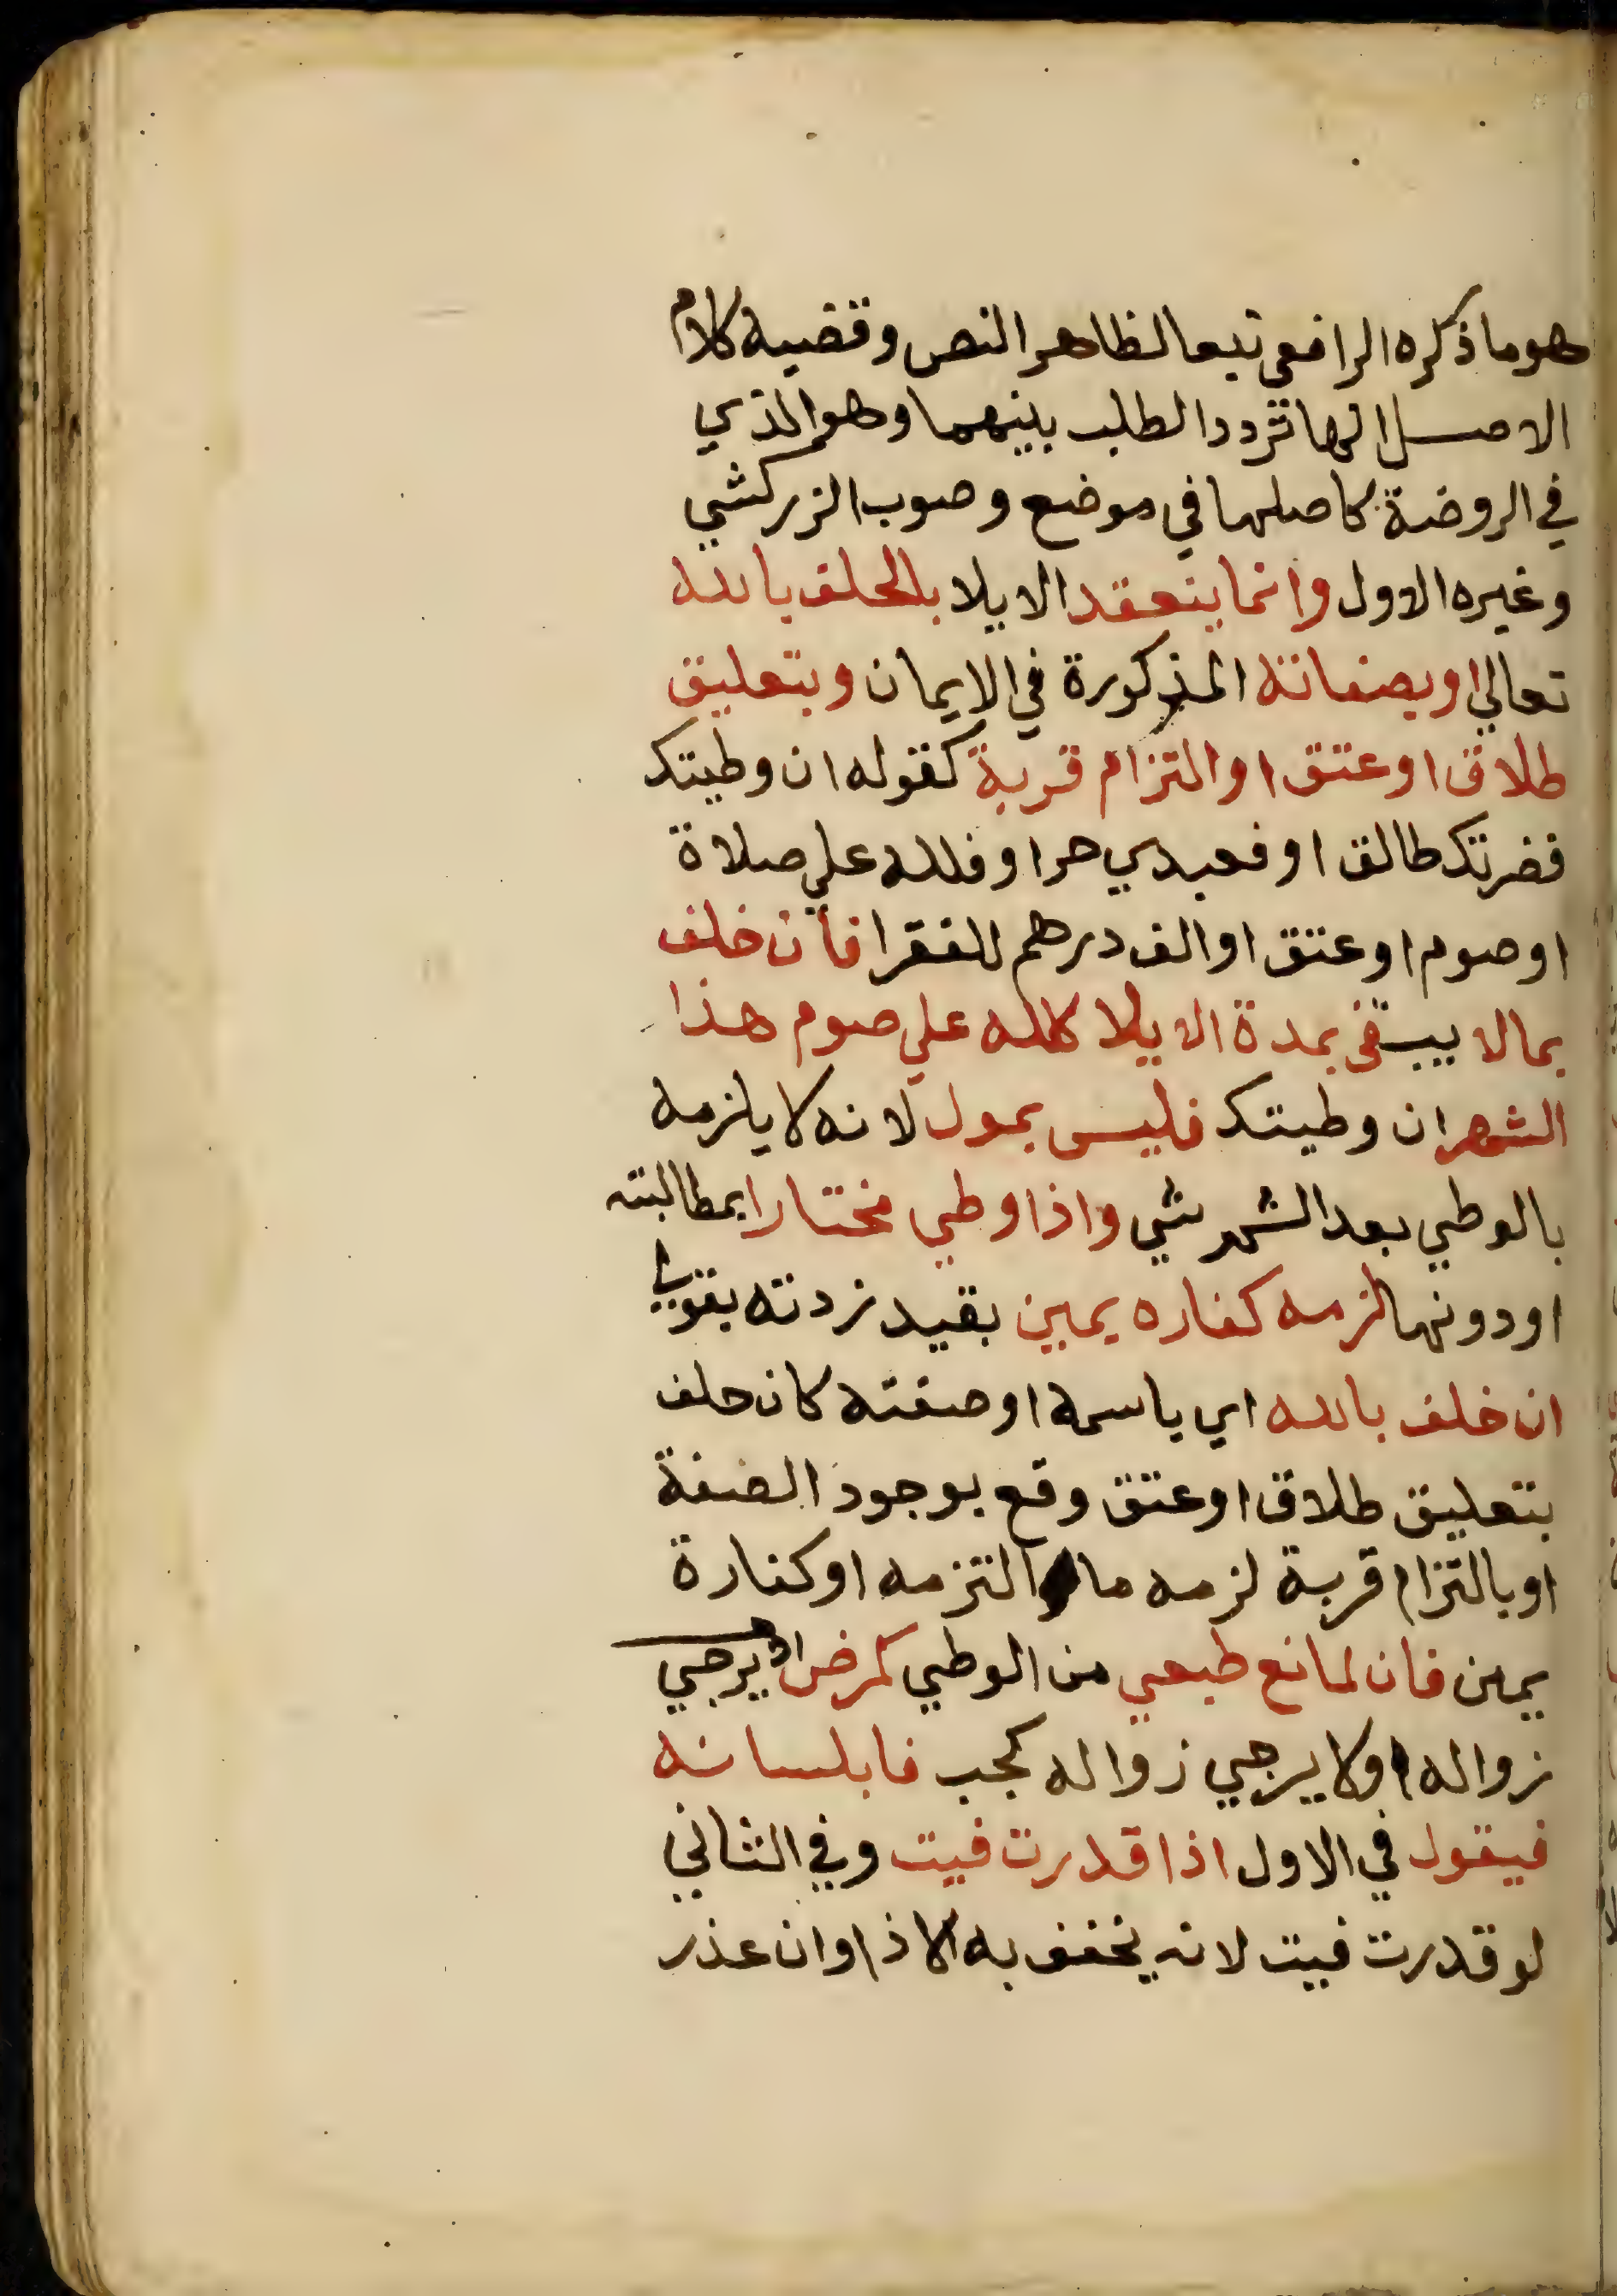 هو ما ذكره الرافعي تبعا لظاهر النص وقضية كلام
الاصل انها تردد الطلب بينهما وهو الذي
في الروضة كاصلها في موضع وصوب الزركشي
وغيره الاول وانما ينعقد الايلا بالحلف بالله
تعالي او بصفاته المذكورة في الايمان وبتعليق
طلاق او عتق او التزام قربة كقوله ان وطيتك
فضرتك طالق او فعبدي حر او فلله علي صلاة
او صوم او عتق او الف درهم للفقرا فان خلف
بما لا يبقي بمدة الايلا كلله علي صوم هذا
الشهر ان وطيتك فليس بمول لانه لا يلزمه
بالوطي بعد الشهر شي واذا وطي مختارا بمطالبته
او دونها لزمه كفاره يمين بقيد زدته بقولي
ان خلف بالله اي باسمه او صفته كان حلف
بتعليق طلاق او عتق وقع بوجود الصفة
او بالتزام قربة لزمه ما التزمه او كفارة
يمين فان لمانع طبعي من الوطي كمرض لا يرجي
زواله او لا يرجي زواله كجب فا بلسانه
فيقول في الاول اذا قدرت فيت وفي الثاني
لو قدرت فيت لانه يخفف به الاذا وان عذر